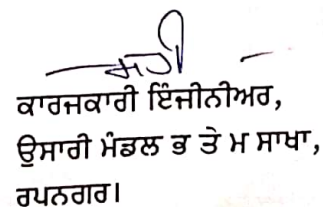 ਸਹੀ
ਕਾਰਜਕਾਰੀ ਇੰਜੀਨੀਅਰ,
ਉਸਾਰੀ ਮੰਡਲ ਭ ਤੇ ਮ ਸਾਖਾ,
ਰੂਪਨਗਰ।